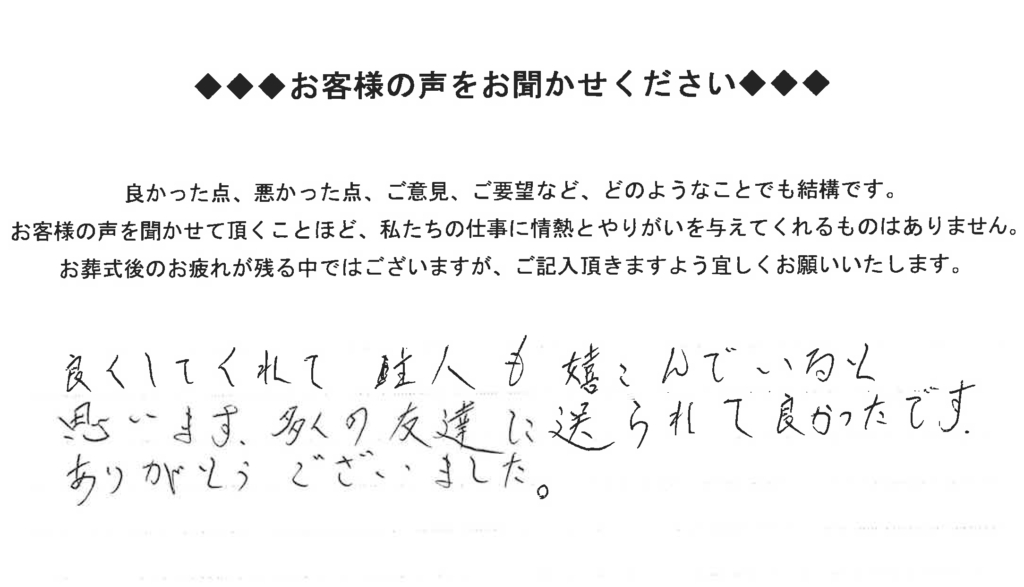 ◆◆◆お客様の声をお聞かせください◆◆◆
良かった点、悪かった点、ご意見、ご要望など、どのようなことでも結構です。
お客様の声を聞かせて頂くことほど、私たちの仕事に情熱とやりがいを与えてくれるものはありません。
お葬式後のお疲れが残る中ではございますが、ご記入頂きますよう宜しくお願いいたします。
良くしてくれて 人も 嬉こんでいると
思います、多くの友達に送られて良かったです.
ありがとう ございました。